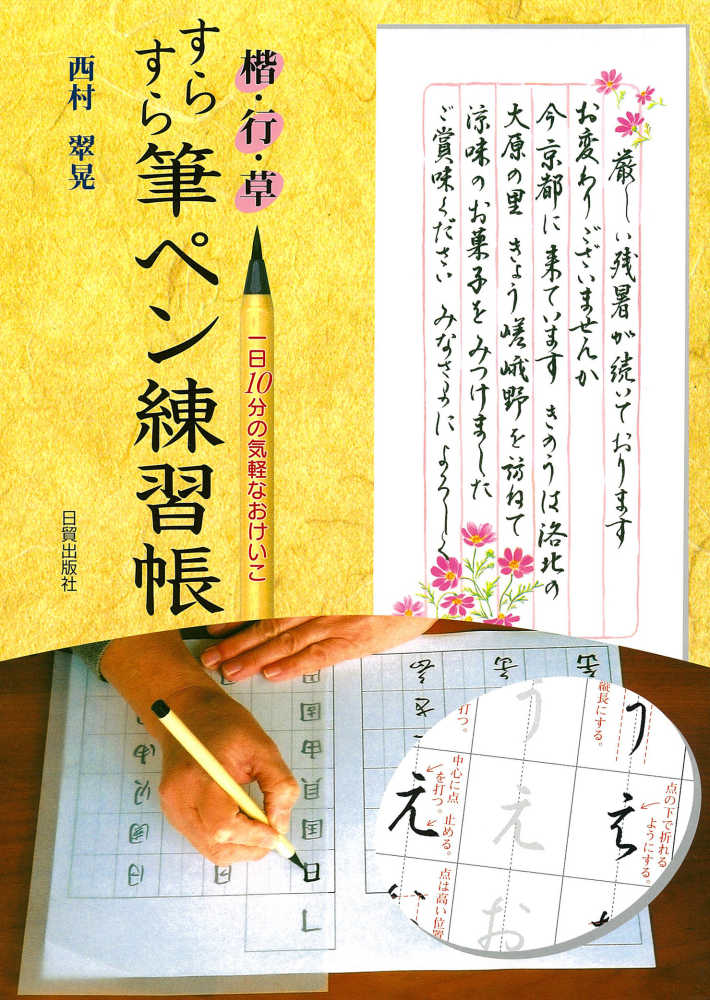 楷・行・草
すら
すら
筆ペン練習帳
西村 翠晃
一日10分の気軽なおけいこ
日貿出版社
厳しい残暑が続いております
お変わりございませんか
今京都に来ています きのうは洛北の
大原の里 きょう嵯峨野を訪ねて
涼味のお菓子をみつけました
ご賞味ください みなさまによろしく
縦長にする。
打つ。
う
う
点の下で折れる
ようにする。
え
え
え
中心に点
を打つ。
止める。
点は高い位置
お
日
国
貝
由
固
田